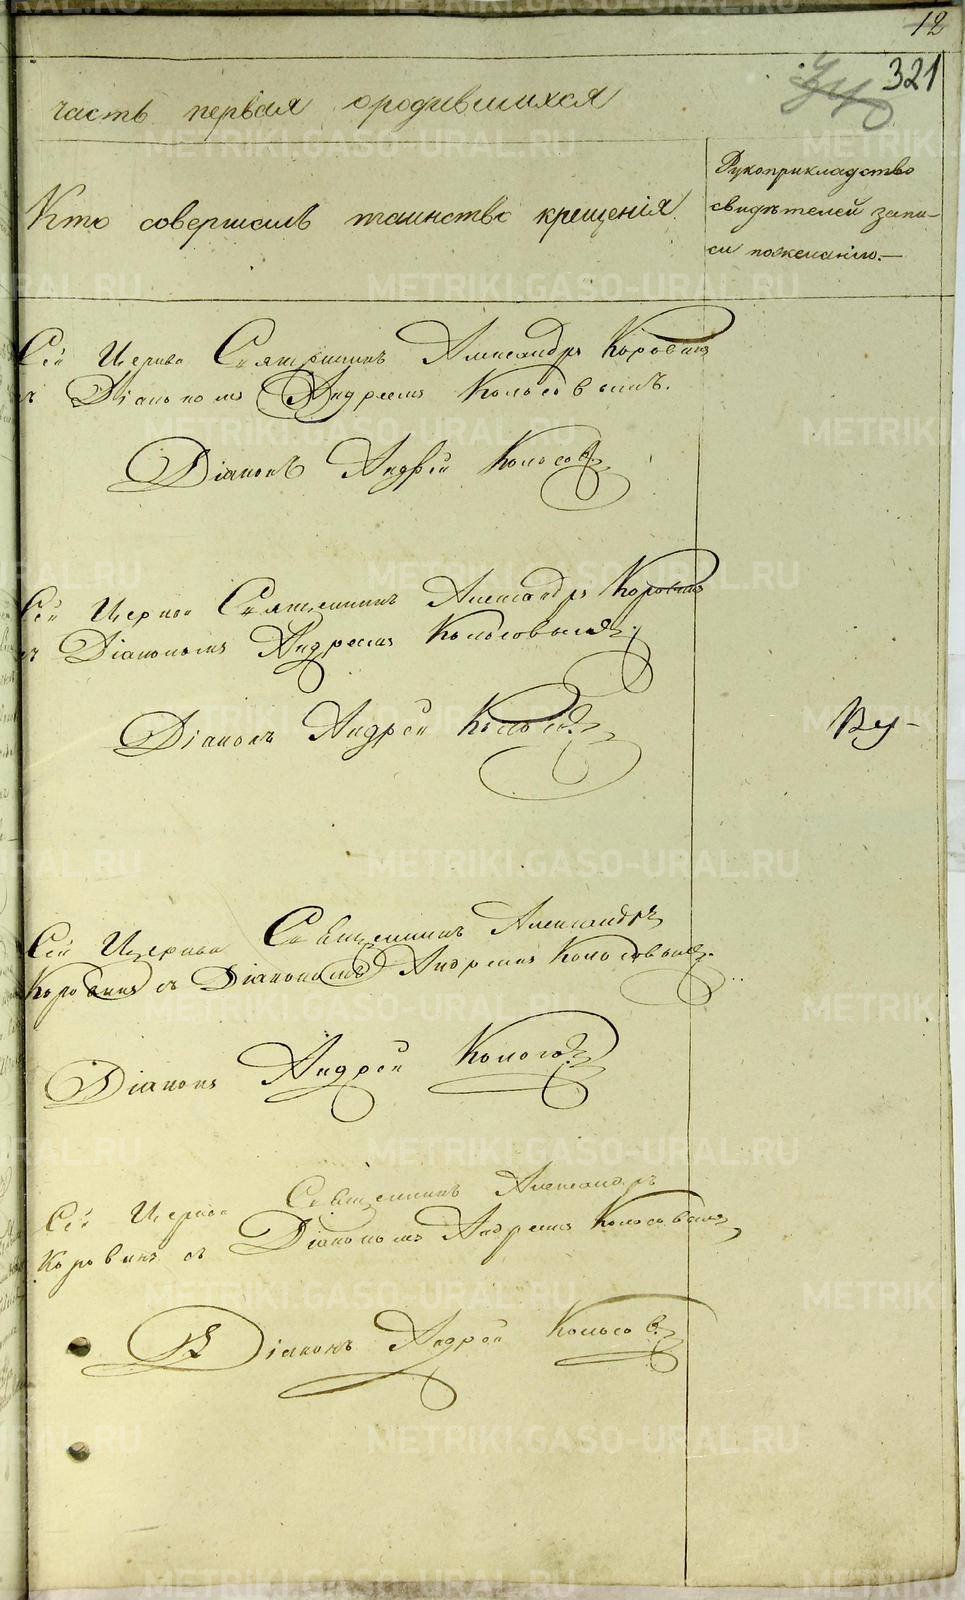 12
321
часть первая о родившихся
Кто совершалъ таинство крещенія.
Рукоприкладство
свидѣтелей запи-
си по желанію.—
Сей Церкви Священникъ Александръ Коровинъ
съ Діакономъ Андреемъ Колосовымъ.
Діаконъ Андрей Колосовъ
Сей Церкви Священникъ Александръ Коровинъ
съ Діакономъ Андреемъ Колосовымъ.
Діаконъ Андрей Колосовъ
Ву-
Сей Церкви Священникъ Александръ
Коровинъ съ Діакономъ Андреемъ Колосовымъ.
Діаконъ Андрей Колосовъ
Сей Церкви Священникъ Александръ
Коровинъ съ Діакономъ Андреемъ Колосовымъ
Діаконъ Андрей Колосовъ
METRIKI.GASO-URAL.RU